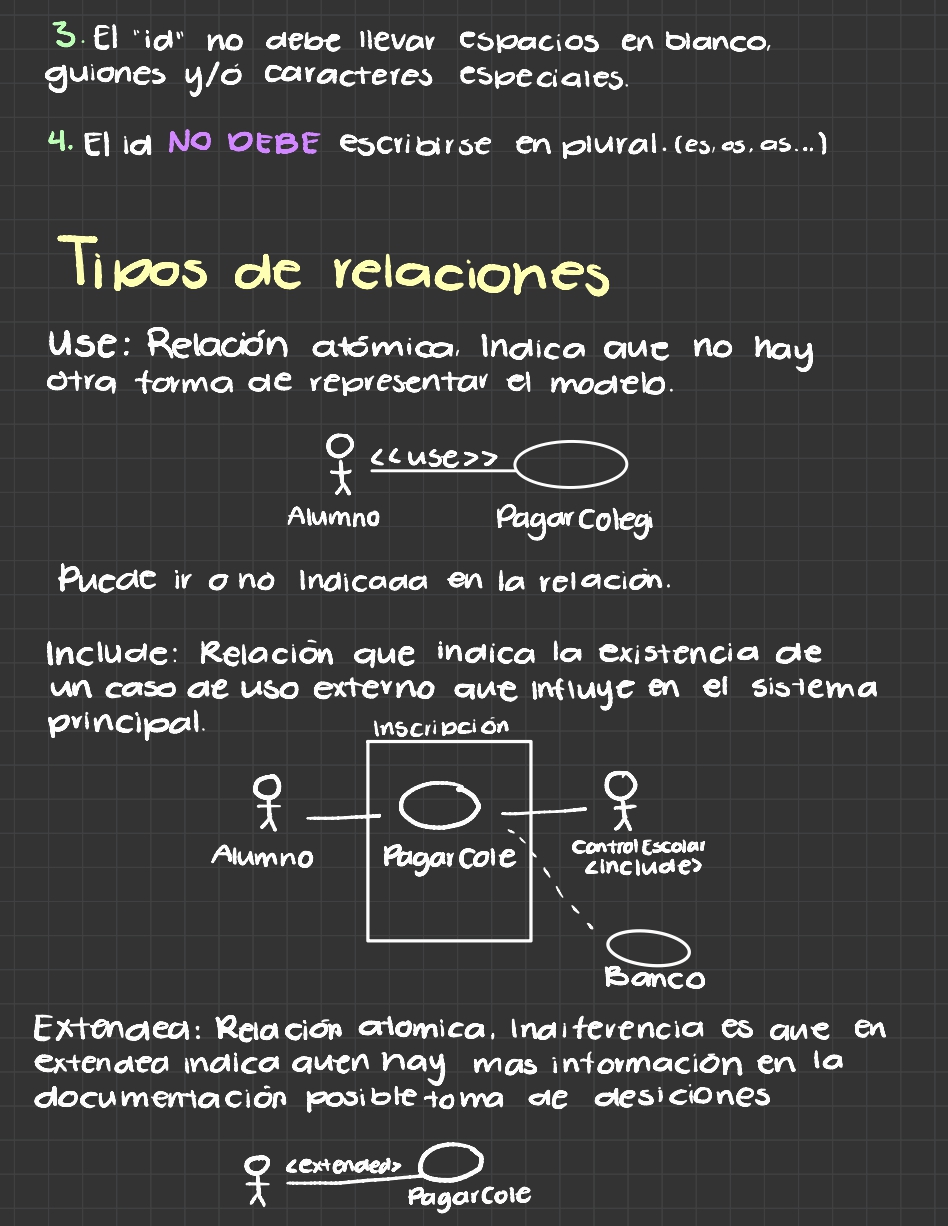 3. El "id" no debe llevar espacios en blanco,
guiones y/ó caracteres especiales.
4. El id NO DEBE escribirse en plural. (es, os, as...)
Tipos de relaciones
Use: Relación atómica. Indica que no hay
otra forma de representar el modelo.
<<use>>
Alumno PagarColegi
Puede ir o no Indicada en la relación.
Include: Relación que indica la existencia de
un caso de uso externo que influye en el sistema
principal.
Inscripción
Alumno PagarCole ControlEscolar
<include>
Banco
Extended: Relación atomica, Indiferencia es que en
extended indica quen hay mas información en la
documentación posible toma de desiciones
<extended>
PagarCole